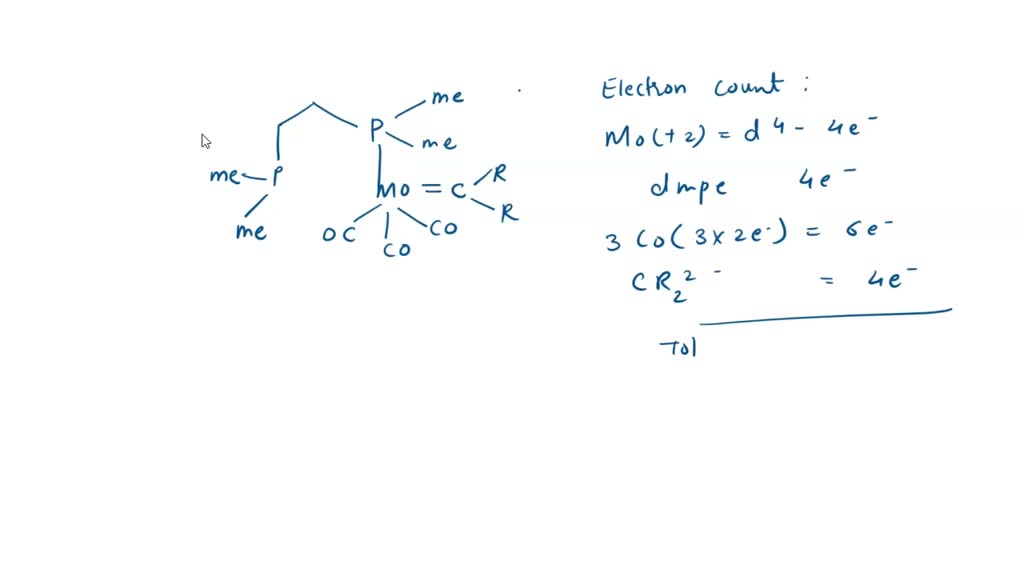 P
me
me
me
P
me
Mo = C
R
R
OC
CO
CO
Electron count :
Mo(+2) = d4 - 4e-
dmpe 4e-
3 Co(3x2e-) = 6e-
CR2 2- = 4e-
Tol